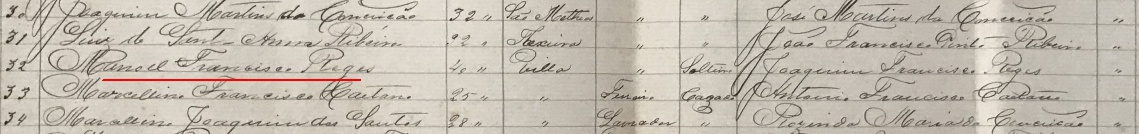 30 Joaquim Martins da Conceicão 32 " São Matheus " " José Martins da Conceicão "
31 Luiz de Sant'Anna Ribeiro 22 " Texeira " " João Francisco Pinto Ribeiro "
32 Manoel Francisco Reges 40 " Villa " Solteiro Joaquim Francisco Reges "
33 Marcellino Francisco Caetano 25 " " Ferreiro Cazado Antonio Francisco Caetano "
34 Marcellino Joaquim dos Santos 28 " " Lavrador " Rozinda Maria da Conceicão "